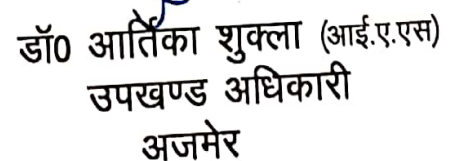 डॉ0 आर्तिका शुक्ला (आई.ए.एस)
उपखण्ड अधिकारी
अजमेर